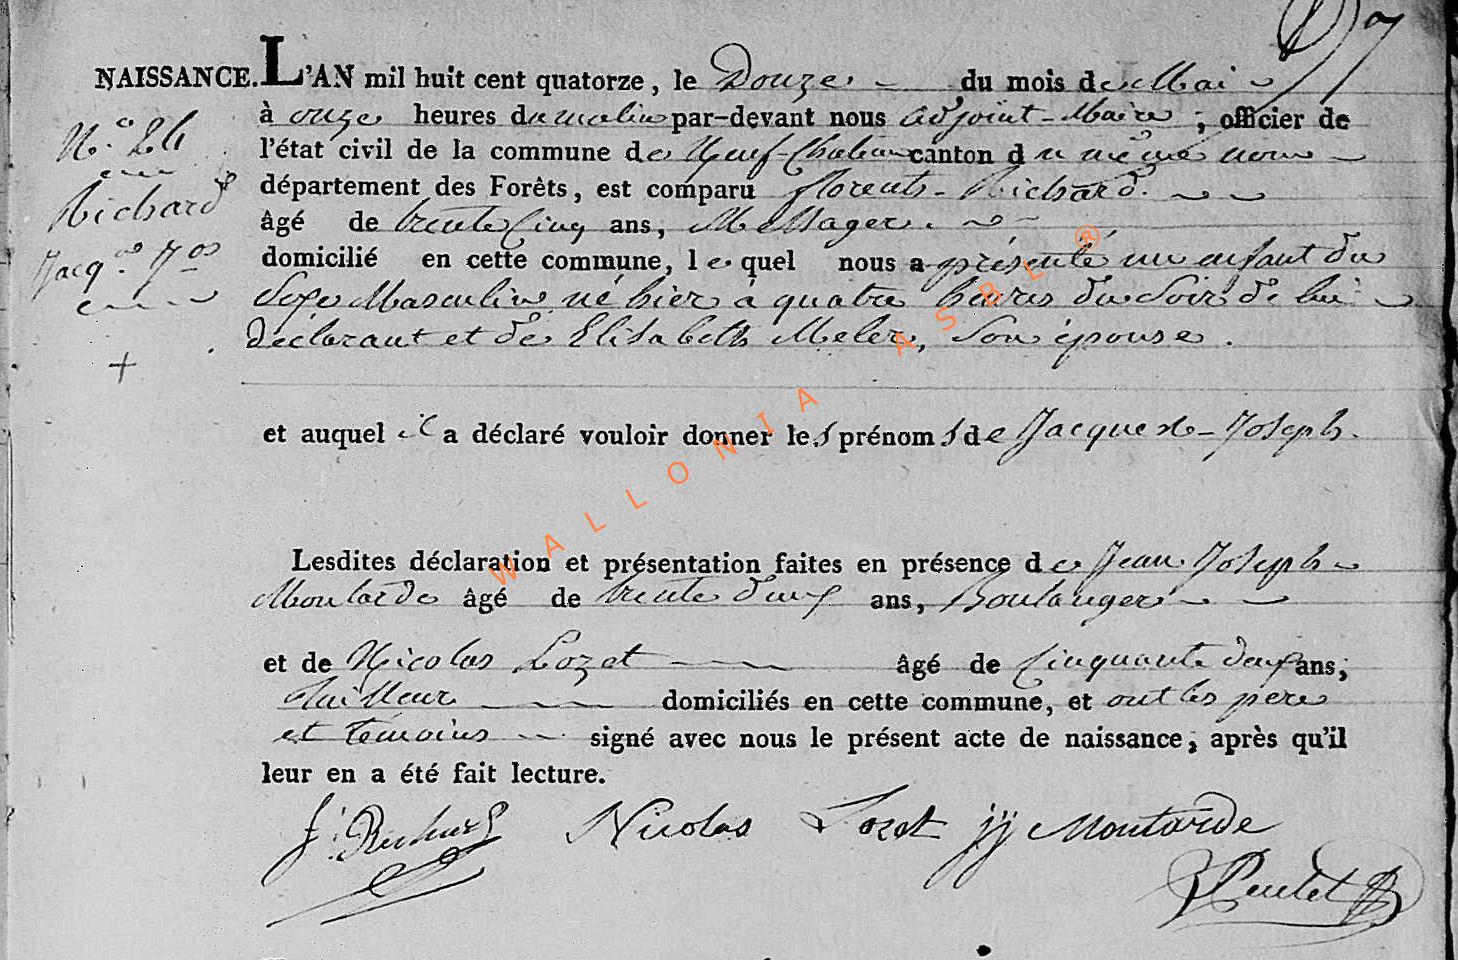 NAISSANCE. L'AN mil huit cent quatorze, le Douze du mois de Mai
à onze heures du matin par-devant nous adjoint-Maire ; officier de
N.° 26
l'état civil de la commune de Neuf-Chateau canton du même nom
département des Forêts, est comparu florent Richard
Richard
âgé de trente Cinq ans, Messager.
domicilié en cette commune, lequel nous a présenté un enfant du
Jacq.s Jos
Sexe Masculin né hier à quatre heures du Soir de lui
déclarant et de Elisabeth Meler, Son épouse.
et auquel il a déclaré vouloir donner les prénoms de Jacques-Joseph.
Lesdites déclaration et présentation faites en présence de Jean Joseph
Moutarde âgé de trente deux ans, Boulanger
et de Nicolas Lozet âgé de Cinquante deux ans,
Tailleur domiciliés en cette commune, et ont les pere
et temoins signé avec nous le présent acte de naissance, après qu'il
leur en a été fait lecture.
f. Richard Nicolas Lozet jj Moutarde
WALLONIA ASBL®